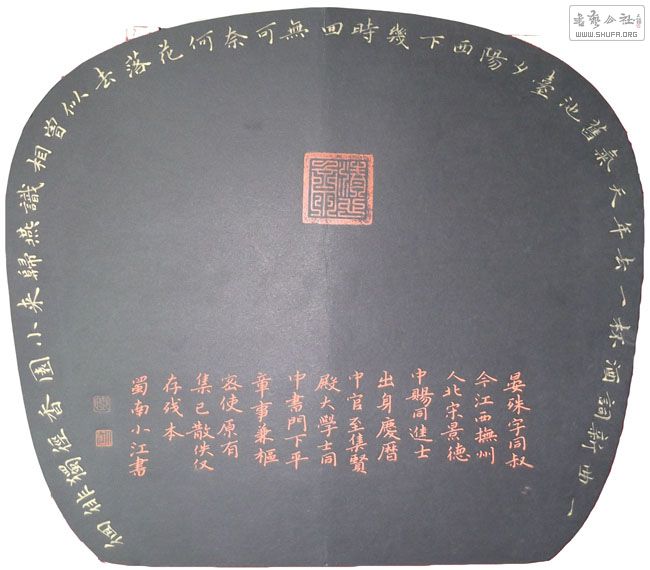 一曲新詞酒杯一去年天氣舊池臺夕陽西下幾時回無可奈何花落去似曾相識燕歸来小園香徑獨徘徊
晏殊字同叔
今江西撫州
人北宋景德
中賜同進士
出身慶曆
中官至集賢
殿大學士同
中書門下平
章事兼樞
密使原有
集已散佚仅
存残本
蜀南小江書
WWW.SHUFA.ORG